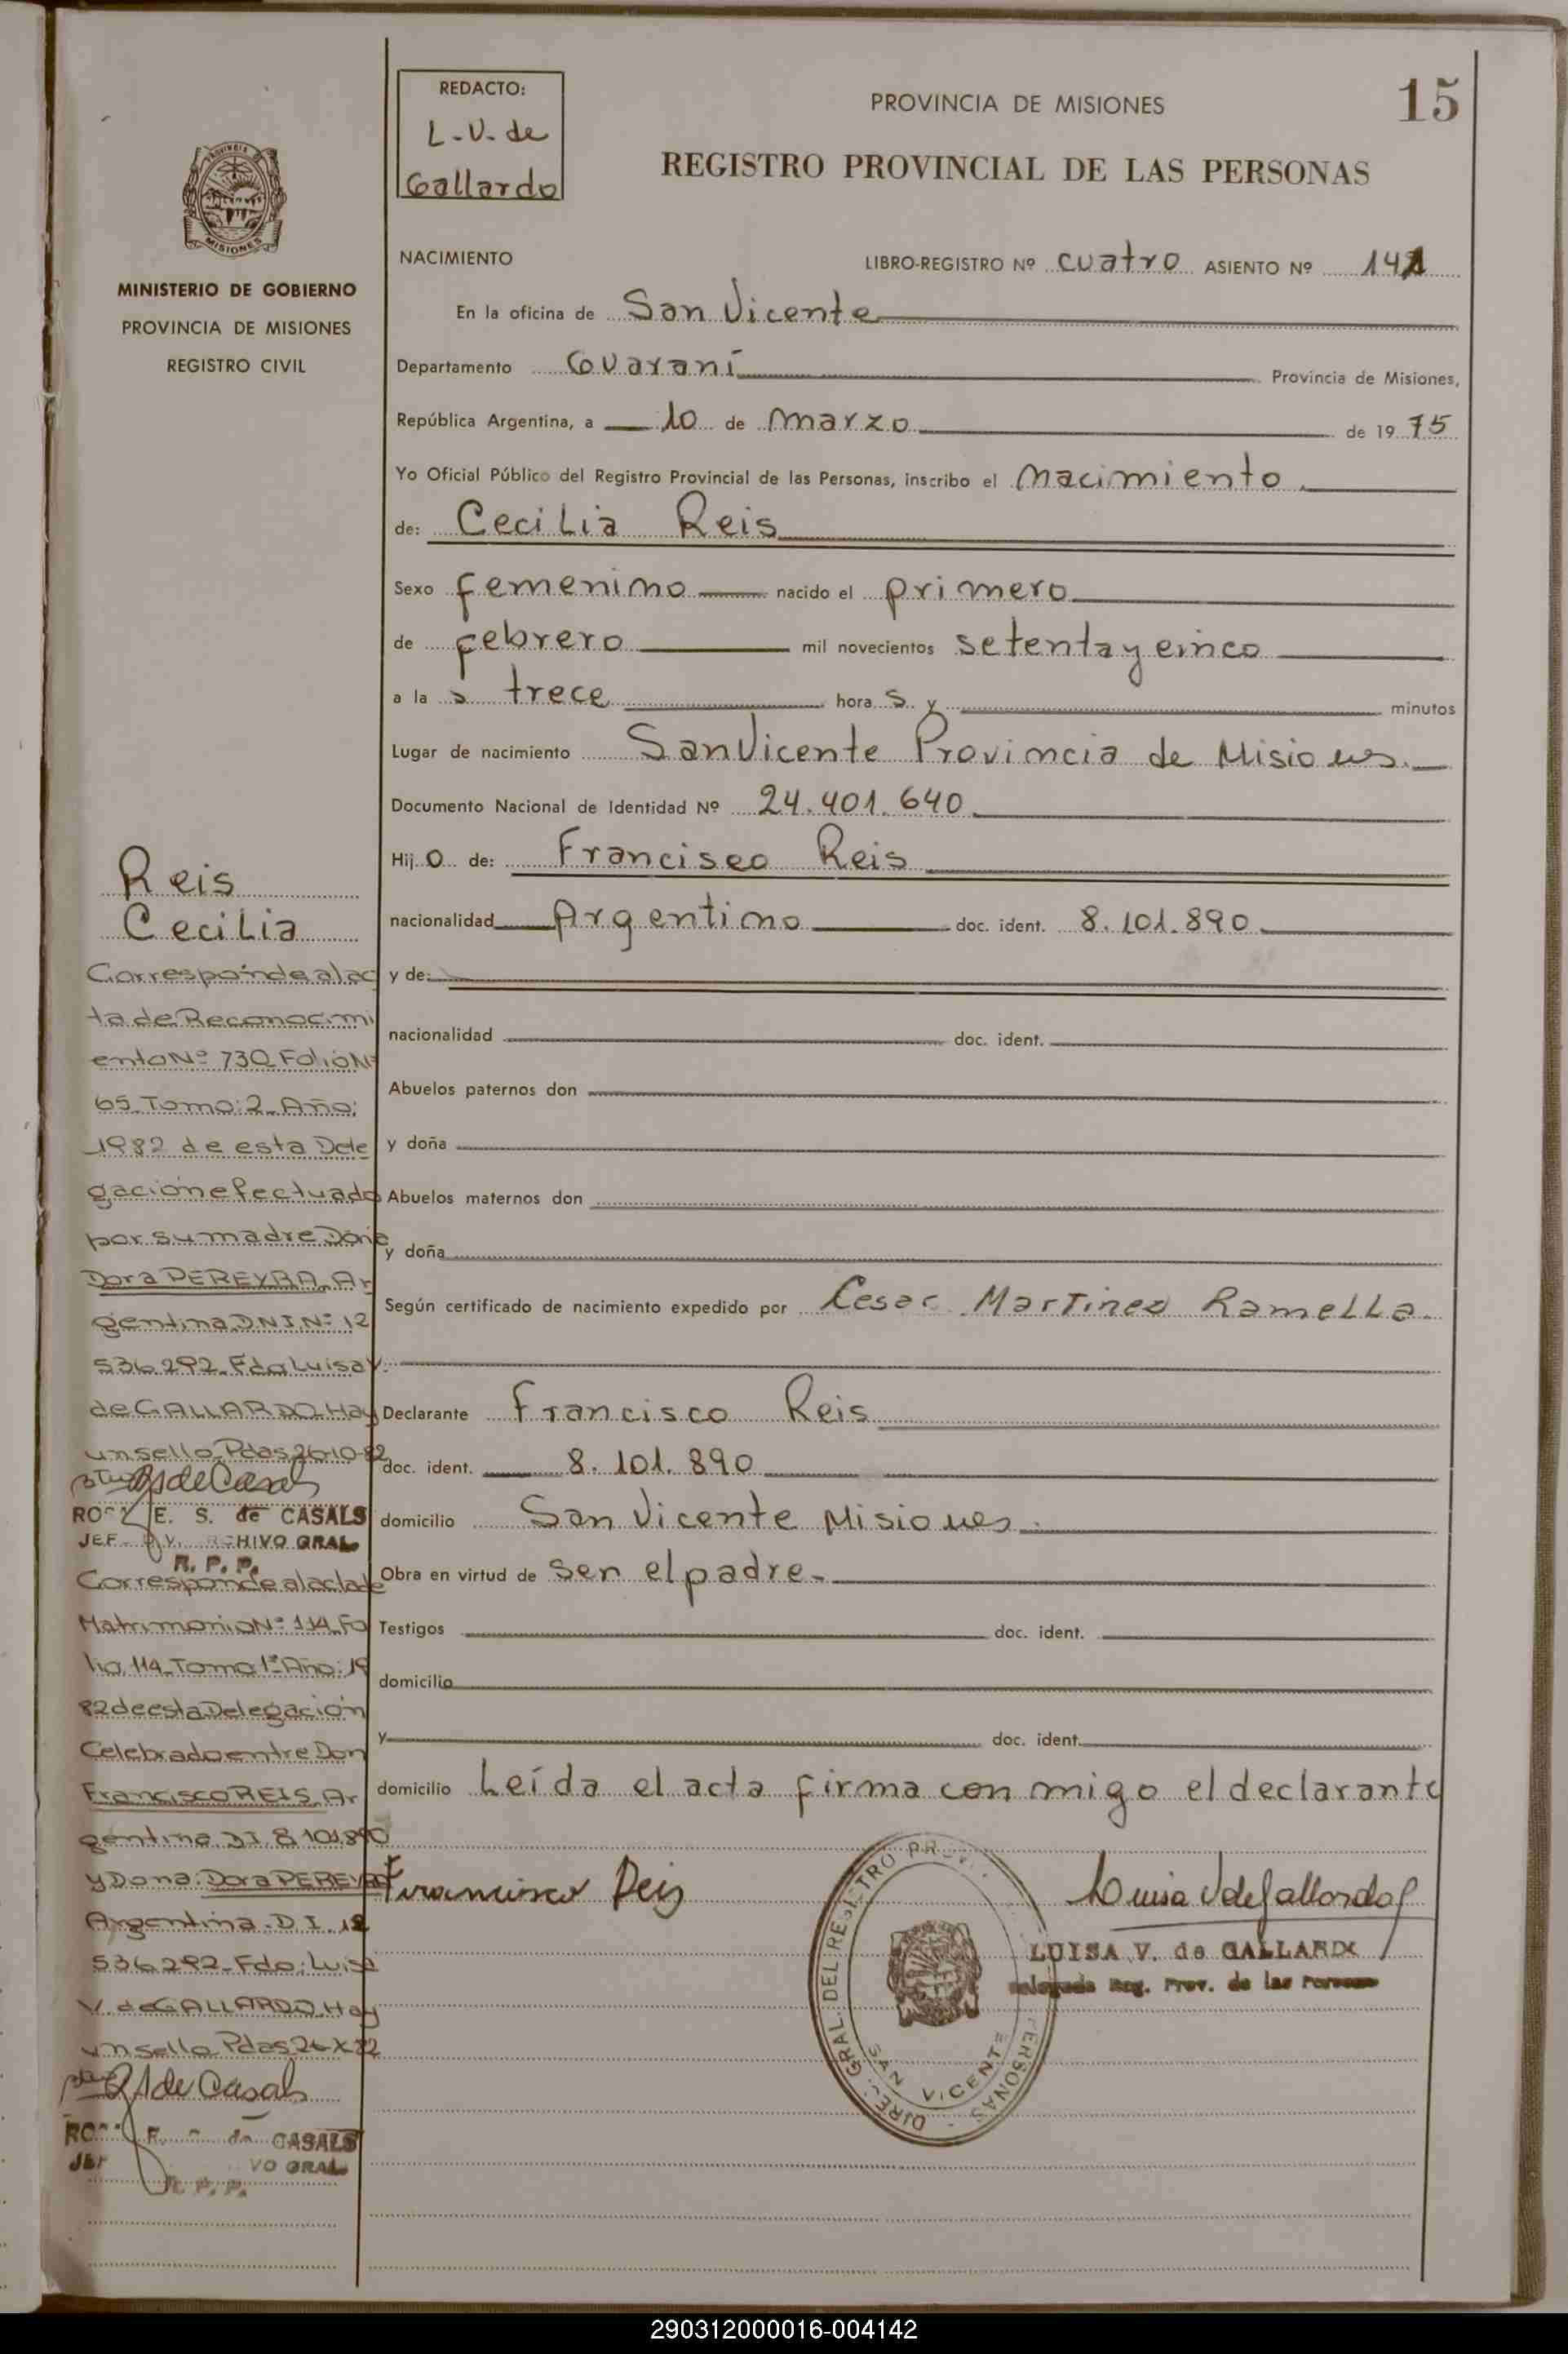 REDACTO:
L.V. de
Gallardo
PROVINCIA DE MISIONES
15
REGISTRO PROVINCIAL DE LAS PERSONAS
PROVINCIA
MISIONES
MINISTERIO DE GOBIERNO
PROVINCIA DE MISIONES
REGISTRO CIVIL
NACIMIENTO LIBRO-REGISTRO Nº cuatro ASIENTO Nº 141
En la oficina de San Vicente
Departamento Guaraní Provincia de Misiones,
República Argentina, a 10 de Marzo de 19 75
Yo Oficial Público del Registro Provincial de las Personas, inscribo el Nacimiento
de: Cecilia Reis
Sexo femenino nacido el primero
de febrero mil novecientos setenta y cinco
a la s trece hora s y minutos
Lugar de nacimiento San Vicente Provincia de Misiones.
Documento Nacional de Identidad Nº 24.401.640
Hij o de: Francisco Reis
nacionalidad Argentino doc. ident. 8.101.890
y de:
nacionalidad doc. ident.
Abuelos paternos don
y doña
Abuelos maternos don
y doña
Según certificado de nacimiento expedido por Cesar Martinez Ramella
Declarante Francisco Reis
doc. ident. 8.101.890
domicilio San Vicente Misiones.
Obra en virtud de sen el padre-
Testigos doc. ident.
domicilio
y doc. ident.
domicilio Leída el acta firma con migo el declarante
Francisco Reis
Luisa V de Gallardo
LUISA V. de GALLARDO
Delegada Reg. Prov. de las Personas
SAN VICENTE
Reis
Cecilia
Corresponde al ac
ta de Reconocimi
ento Nº 730 Folio Nº
65 Tomo: 2 Año:
1982 de esta Dele
gación efectuado
por su madre Doña
Dora PEREYRA Ar
gentina D.N.I. Nº 12
536.292 Fdo Luisa V.
de GALLARDO Hay
un sello Pdas 26-10-82
E. S. de CASALS
ARCHIVO GRAL.
R. P. P.
Corresponde al acta de
Matrimonio Nº 114 Fo
lio 114 Tomo 1º Año: 19
82 de esta Delegación
Celebrado entre Don
Francisco REIS Ar
gentino D.I. 8.101.890
y Dona Dora PEREYRA
Argentina. D.I. 12
536.292 Fdo: Luisa
V. de GALLARDO Hay
un sello Pdas 26 X 82
de CASALS
VO GRAL.
R. P. P.
290312000016-004142